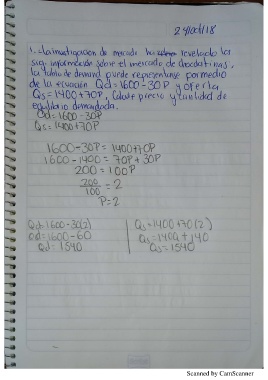 24/oct/18
1. La investigacion de mercado ha revelado la
sig. información sobre el mercado de chocolatinas,
la tabla de demand puede representarse por medio
de la ecuación Qd=1600-30P y oferta
Qs=1400+70P, Calcule precio y cantidad de
equilibrio demandada.
Qd=1600-30P
Qs=1400+70P
1600-30P=1400+70P
1600-1400=70P+30P
200=100P
200/100=2
P=2
Qd=1600-30(2)
Qd=1600-60
Qd=1540
Qs=1400+70(2)
Qs=1400+140
Qs=1540
Scanned by CamScanner